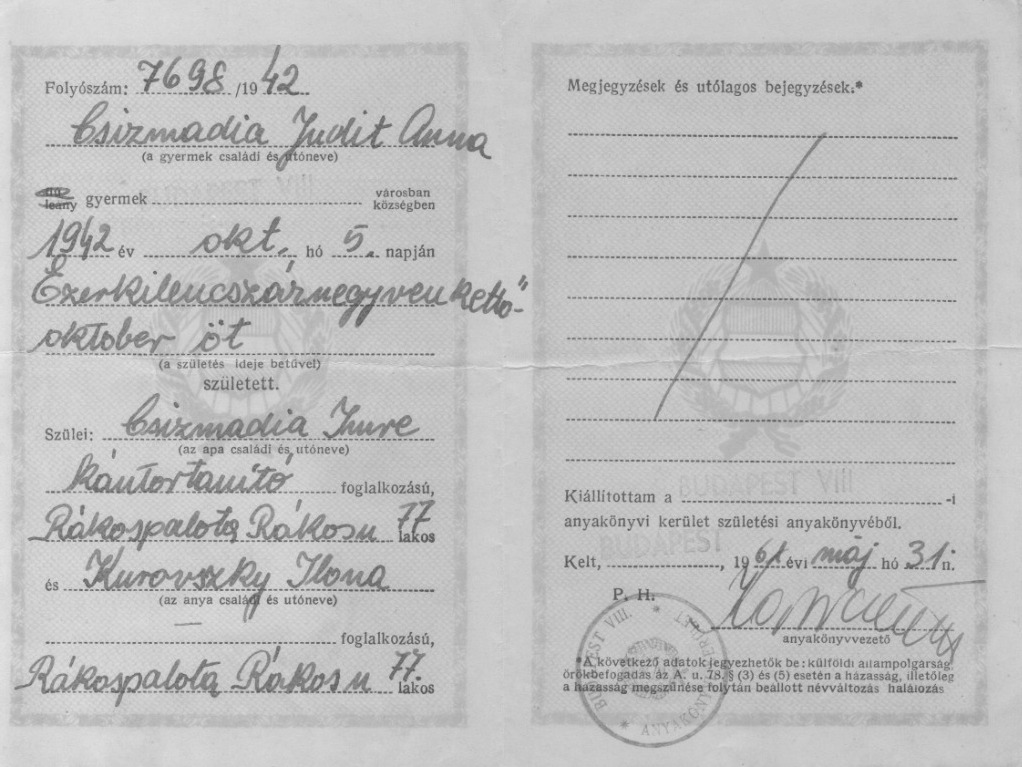 Folyószám: 7698 /1942
Csizmadia Judit Anna
(a gyermek családi és utóneve)
BUDAPEST VIII
leány gyermek városban községben
1942 év okt. hó 5. napján
Ezerkilencszáznegyvenkettő"
október öt
(a születés ideje betűvel)
született.
Szülei: Csizmadia Imre
(az apa családi és utóneve)
kántortanító foglalkozású,
Rákospalota Rákosu 77 lakos
és Kurovszky Ilona
(az anya családi és utóneve)
— foglalkozású,
Rákospalota Rákosu 77. lakos
Megjegyzések és utólagos bejegyzések.*
Kiállítottam a BUDAPEST VIII -i
anyakönyvi kerület születési anyakönyvéből.
Kelt, BUDAPEST, 1961 évi máj hó 31 n.
P. H.
anyakönyvvezető
BUDAPEST VIII. * KERÜLET * ANYAKÖNYV
*A következő adatok jegyezhetők be: külföldi állampolgárság,
örökbefogadás az A. u. 78. § (3) és (5) esetén a házasság, illetőleg
a házasság megszűnése folytán beállott névváltozás halálozás